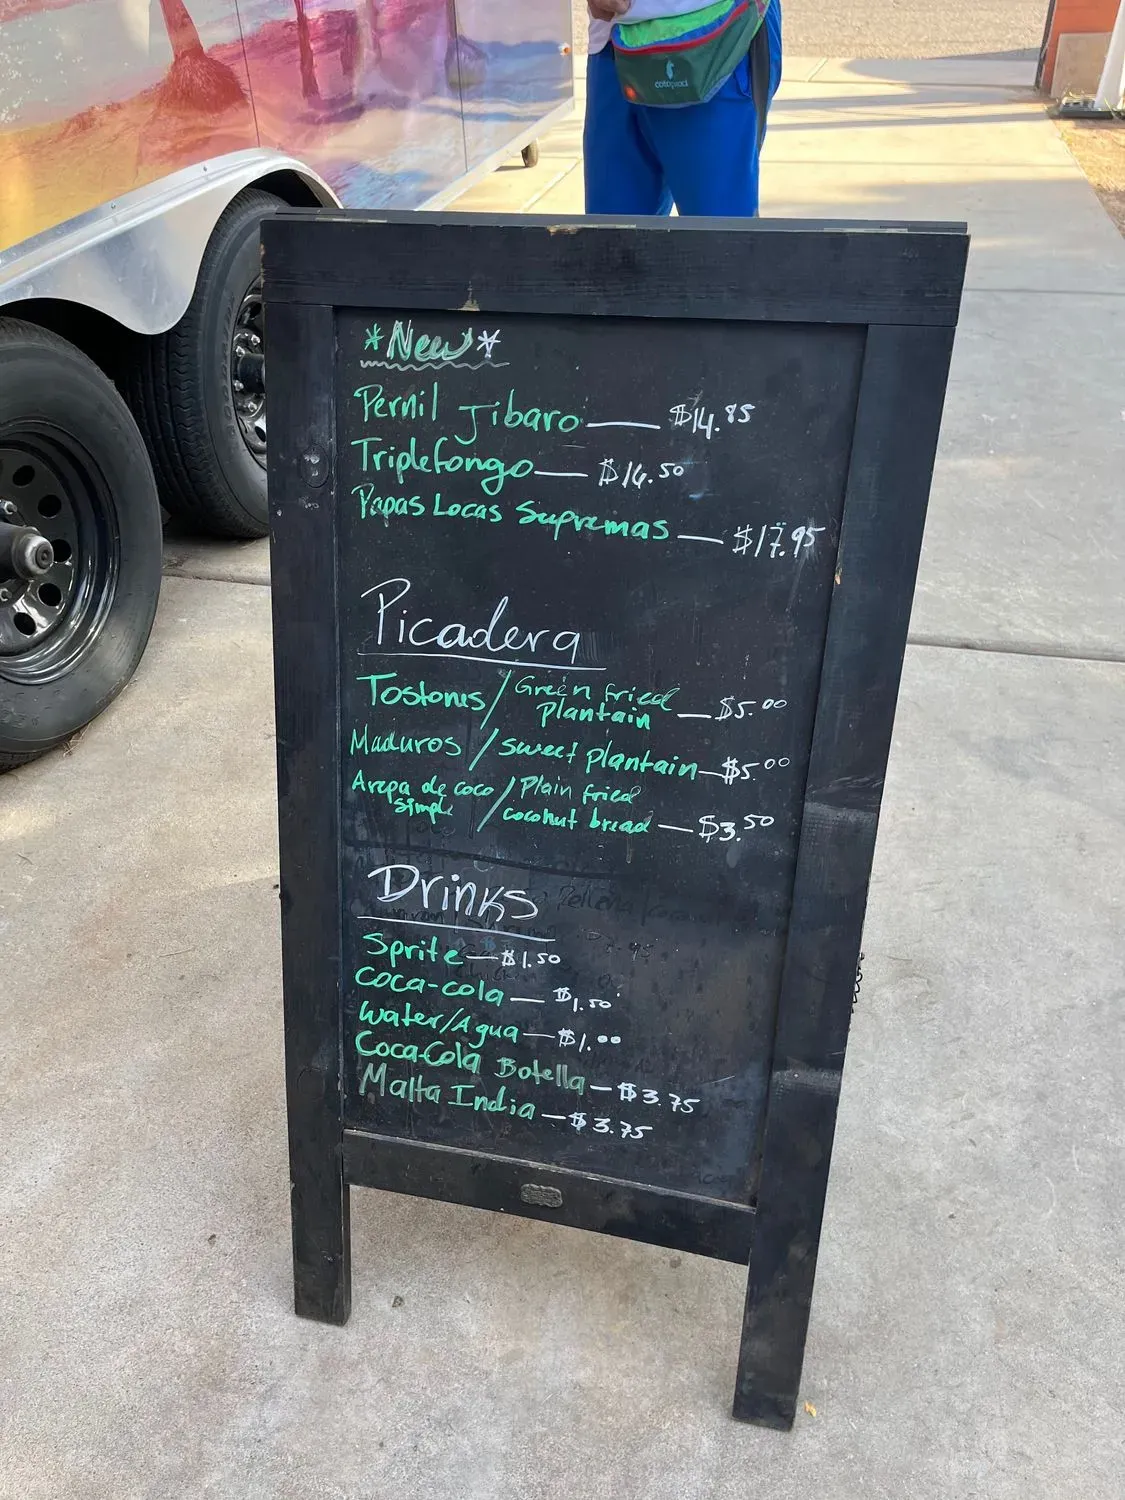 cotopaxi
*New*
Pernil Jibaro — $14.85
Triplefongo — $16.50
Papas Locas Supremas — $17.95
Picadera
Tostones / Green fried plantain — $5.00
Maduros / sweet plantain — $5.00
Arepa de coco simple / Plain fried coconut bread — $3.50
Drinks
Sprite — $1.50
Coca-cola — $1.50
Water/Agua — $1.00
Coca-Cola Botella — $3.75
Malta India — $3.75